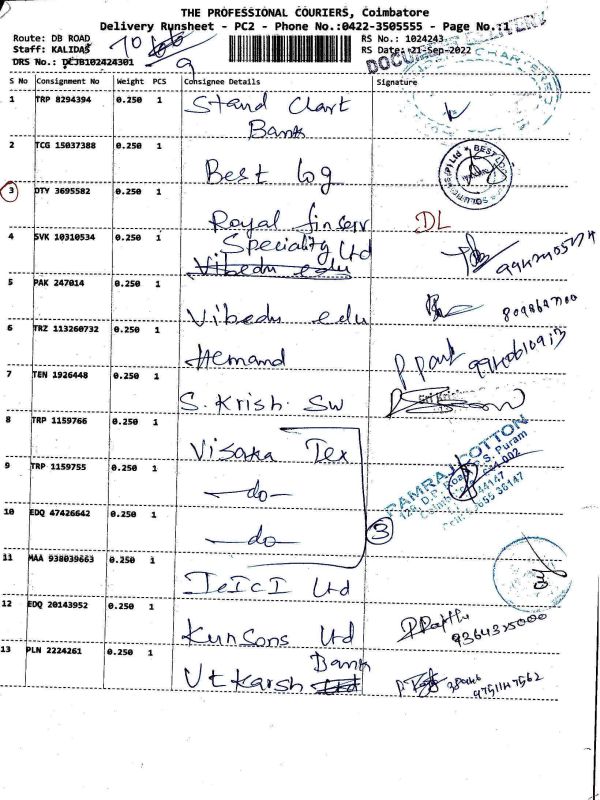 THE PROFESSIONAL COURIERS, Coimbatore
Delivery Runsheet - PC2 - Phone No.:0422-3505555 - Page No.:1
Route: DB ROAD
RS No.: 1024243
Staff: KALIDAS
RS Date: 21-Sep-2022
DRS No.: DCJB102424301
DOCUMENT DELIVERY
S No Consignment No Weight PCS Consignee Details Signature
1 TRP 8294394 0.250 1 Stand Chart
Bank
2 TCG 15037388 0.250 1
Best log
3 DTY 3695582 0.250 1
Royal finserv DL
4 SVK 10310534 0.250 1 Speciality Ltd
Vibedu edu
5 PAK 247014 0.250 1
Vibedu edu
6 TRZ 113260732 0.250 1
Hemand
7 TEN 1926448 0.250 1
S. Krish. SW
8 TRP 1159766 0.250 1
Visaka Tex
PAMRAJ COTTON
9 TRP 1159755 0.250 1
-do-
10 EDQ 47426642 0.250 1
-do- 3
11 MAA 938039663 0.250 1
IcIcI Ltd
12 EDQ 20143952 0.250 1
Kunsons Ltd 9364325000
13 PLN 2224261 0.250 1 Bank
Utkarsh Ltd